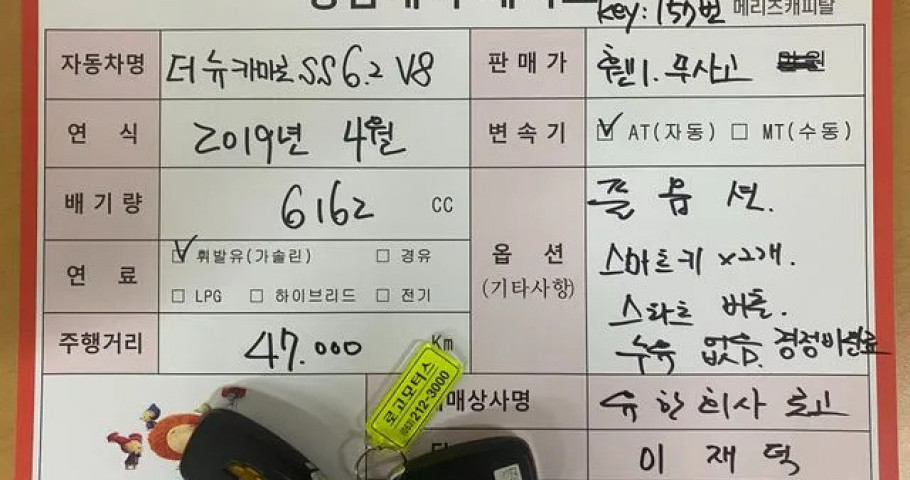 key: 157번 메리츠캐피탈
자동차명 더 뉴 카마로 SS 6.2 V8
판매가 렌1. 무사고 만원
연 식 2019년 4월
변속기 ☑ AT(자동) ☐ MT(수동)
배기량 6162 CC
옵 션
(기타사항)
풀 옵 션.
스마트키 x2개.
스타트 버튼.
누유 없음. 경정비완료
연 료 ☑ 휘발유(가솔린) ☐ 경유
☐ LPG ☐ 하이브리드 ☐ 전기
주행거리 47.000 Km
로고모터스
212-3000
매매상사명 유한회사 로고
이 재 덕